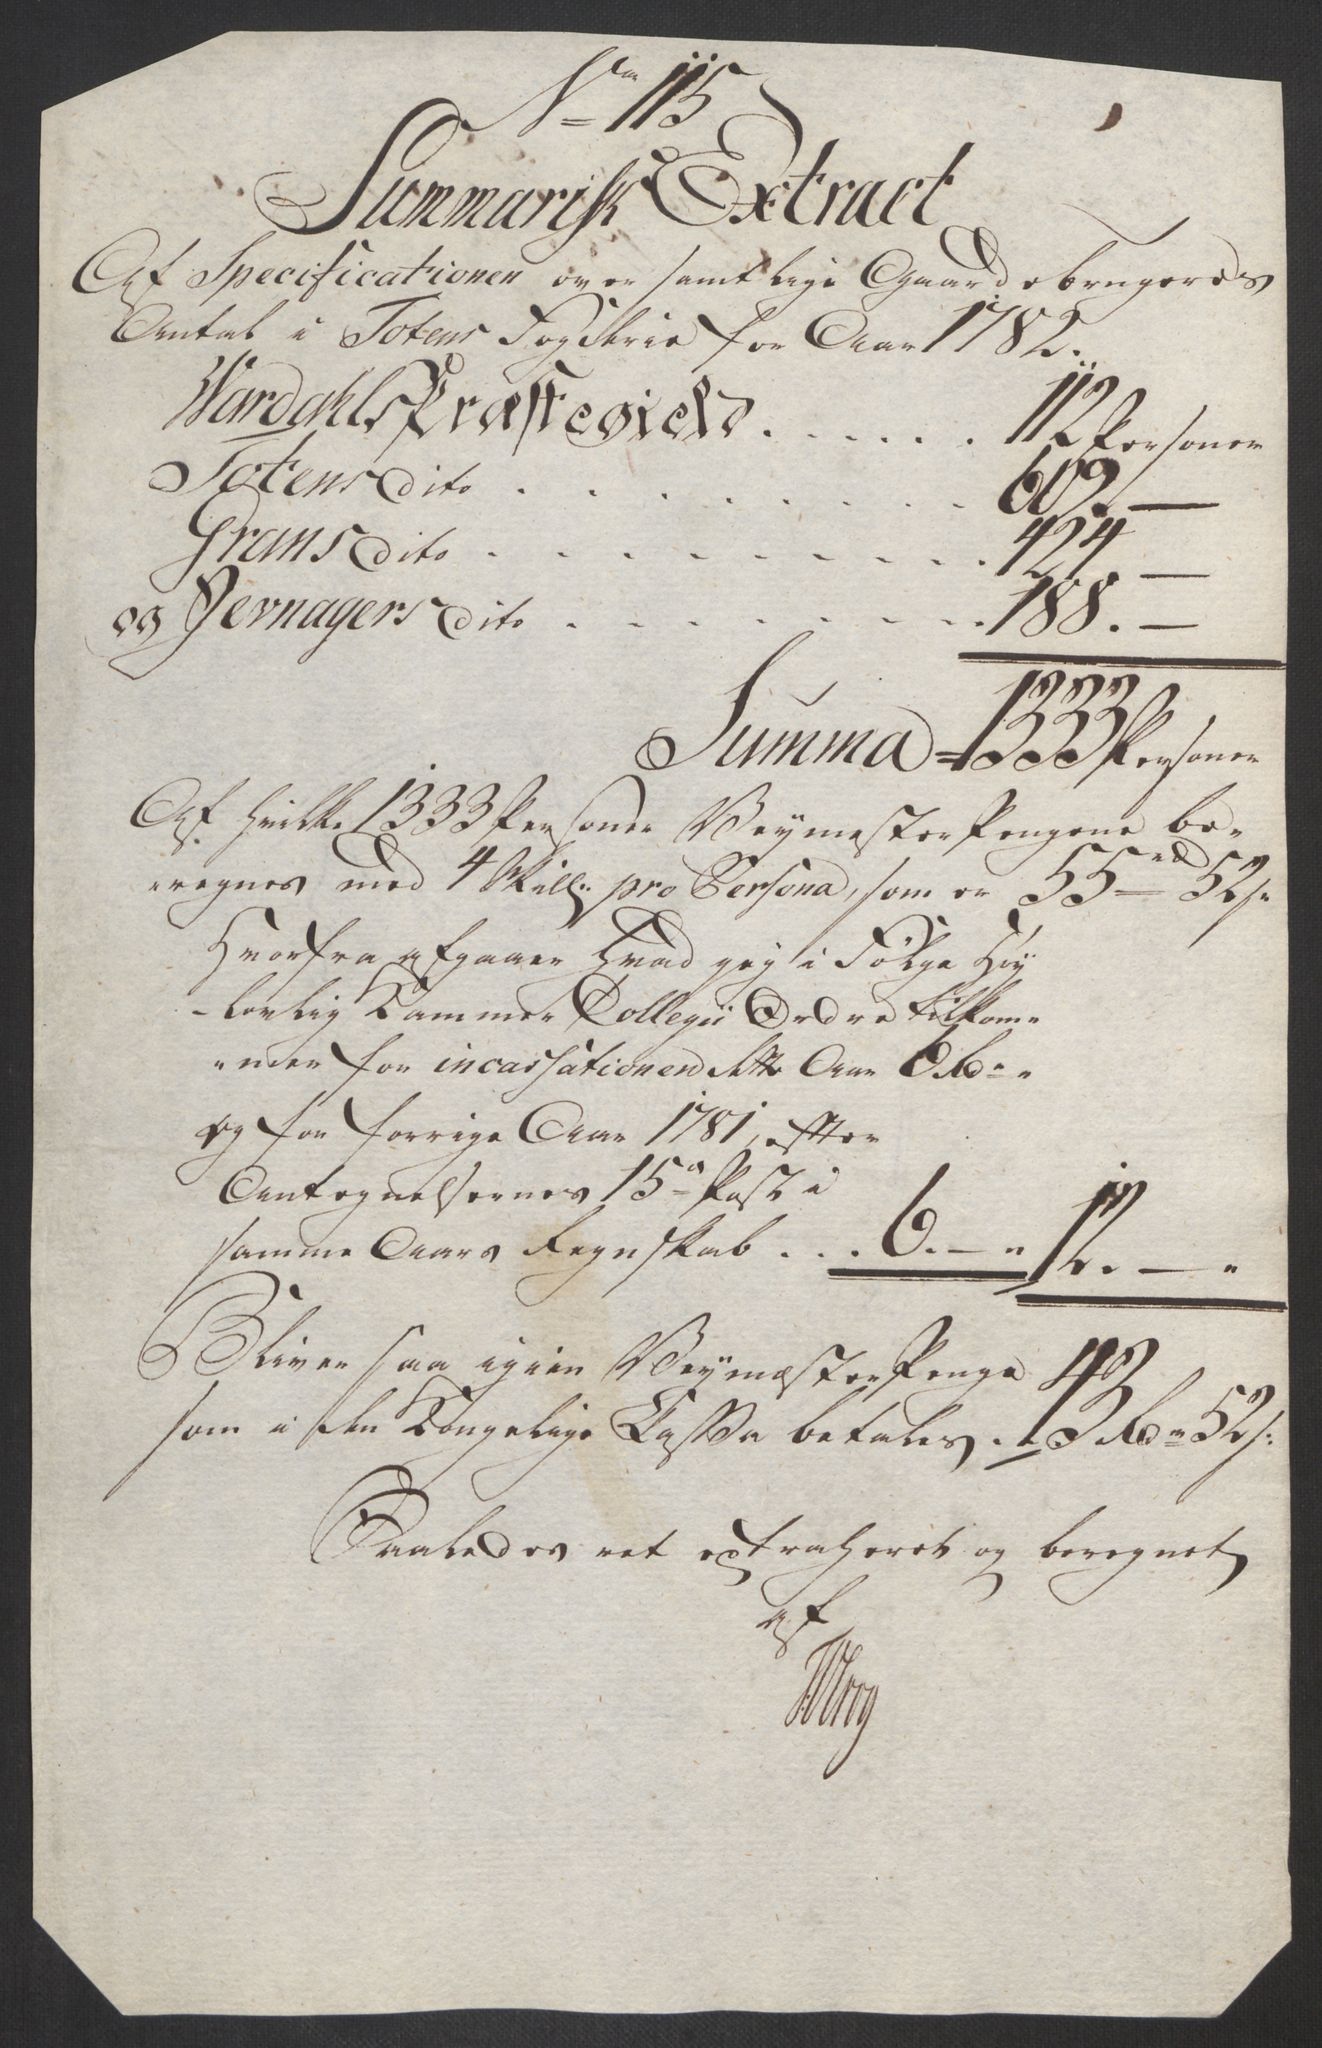 No 115
Summarisk Extract
Af Specificationen over samtlige Gaardebrugeres
Antal i Totens Fogderie for Aar 1782.
Wardahls Præstegield . . . . . . 112 Personer
Totens dito . . . . . . . . . 609. —
Grans dito . . . . . . . . . 424 —
og Jevnagers dito . . . . . . . . . 188. —
Summa = 1333 Personer
Af hvilke 1333 Personer Veymester Pengene be-
-regnes med 4 Skill: pro Persona, som er 55 rd 52 s:
Hvorfra afgaaer hvad jeg i Følge Høy
-lovlig Kammer Collegii Ordre tilkom-
-mer for incassationen dette Aar 6 Rd - "
og for forrige Aar 1781, efter
Antegnelsernes 15de Post i
samme Aars Regnskab . . . 6. — " 12. — "
Bliver saa igien Veymæster Penge
som i den Kongelige Cassa betales . 43 Rd 52 s:
Saaledes ret extraheret og beregnet
af